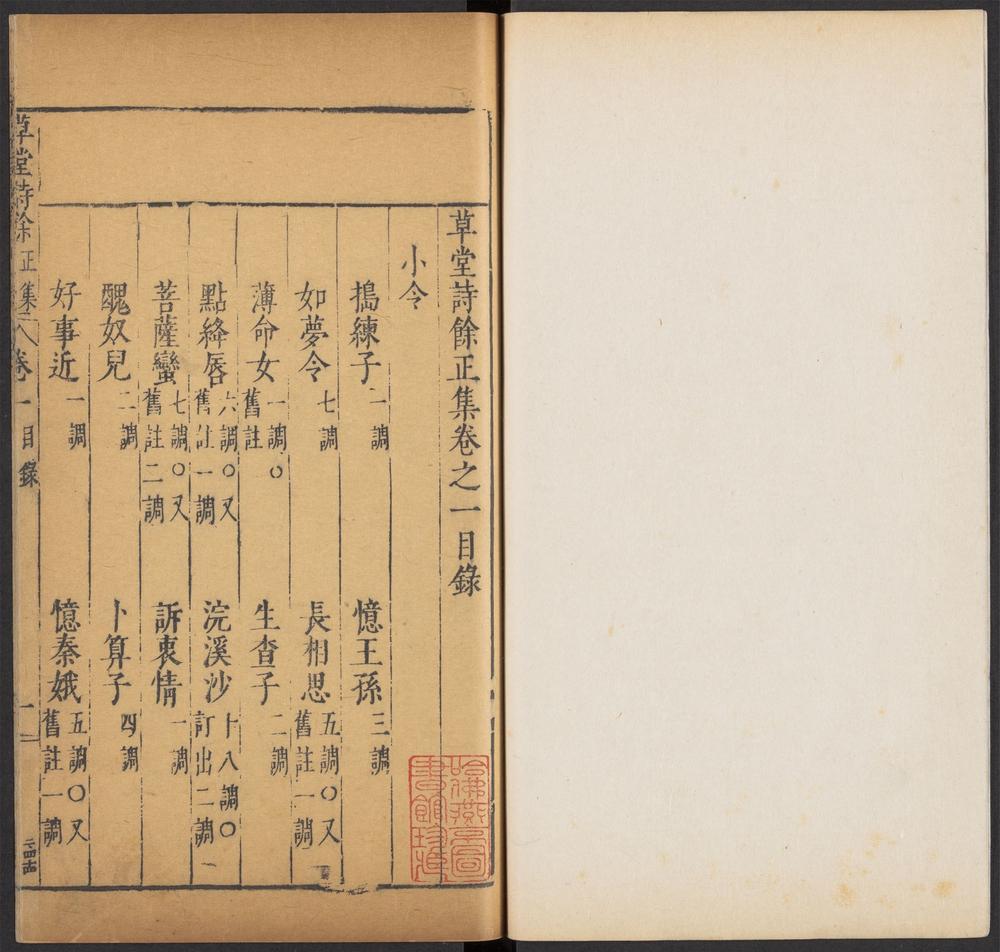 草堂詩餘正集卷之一目錄
小令
搗練子一調 憶王孫三調
如夢令七調 長相思五調○又舊註一調
薄命女一調○舊註 生查子二調
點絳唇六調○又舊註一調 浣溪沙十八調○訂出二調
菩薩蠻七調○又舊註二調 訴衷情一調
醜奴兒二調 卜算子四調
好事近一調 憶秦娥五調○又舊註一調
草堂詩餘正集 卷一目錄 一
哈佛燕京圖書館珍藏